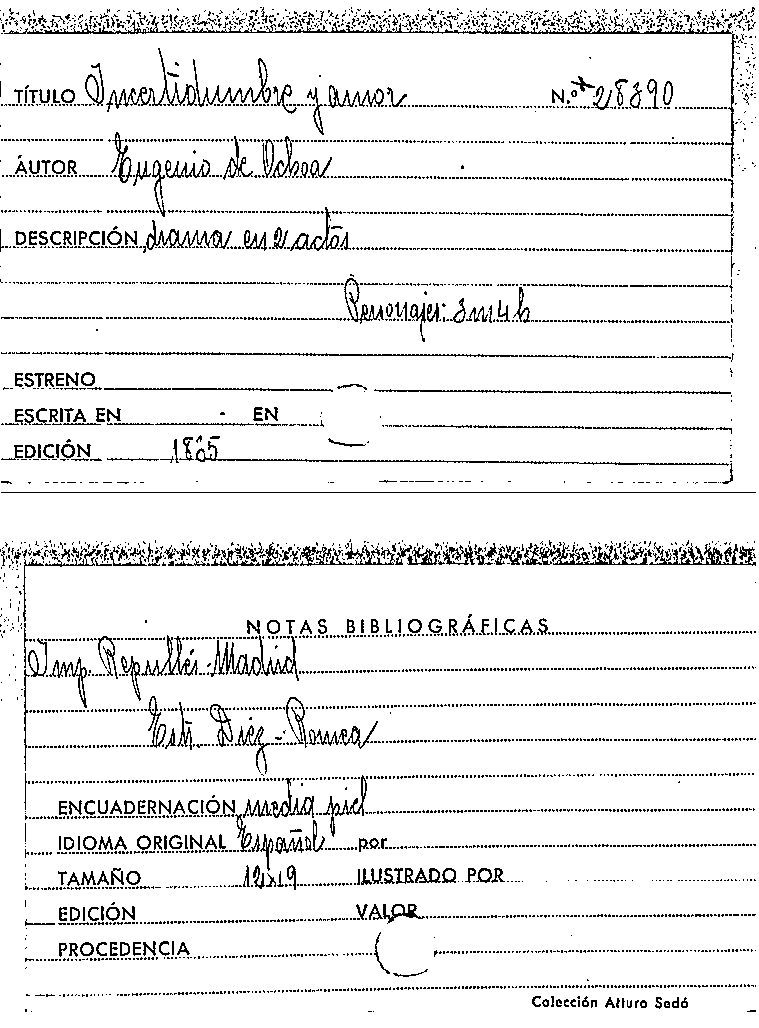 TÍTULO Incertidumbre y amor N.º 28390
AUTOR Eugenio de Ochoa
DESCRIPCIÓN drama en 2 actos
Personajes: 3m4h
ESTRENO
ESCRITA EN - EN
EDICIÓN 1835
NOTAS BIBLIOGRÁFICAS
Imp. Repullés-Madrid
Estr. Diez-Romea
ENCUADERNACIÓN media piel
IDIOMA ORIGINAL Español por
TAMAÑO 12x19 ILUSTRADO POR
EDICIÓN VALOR
PROCEDENCIA
Colección Arturo Sedó